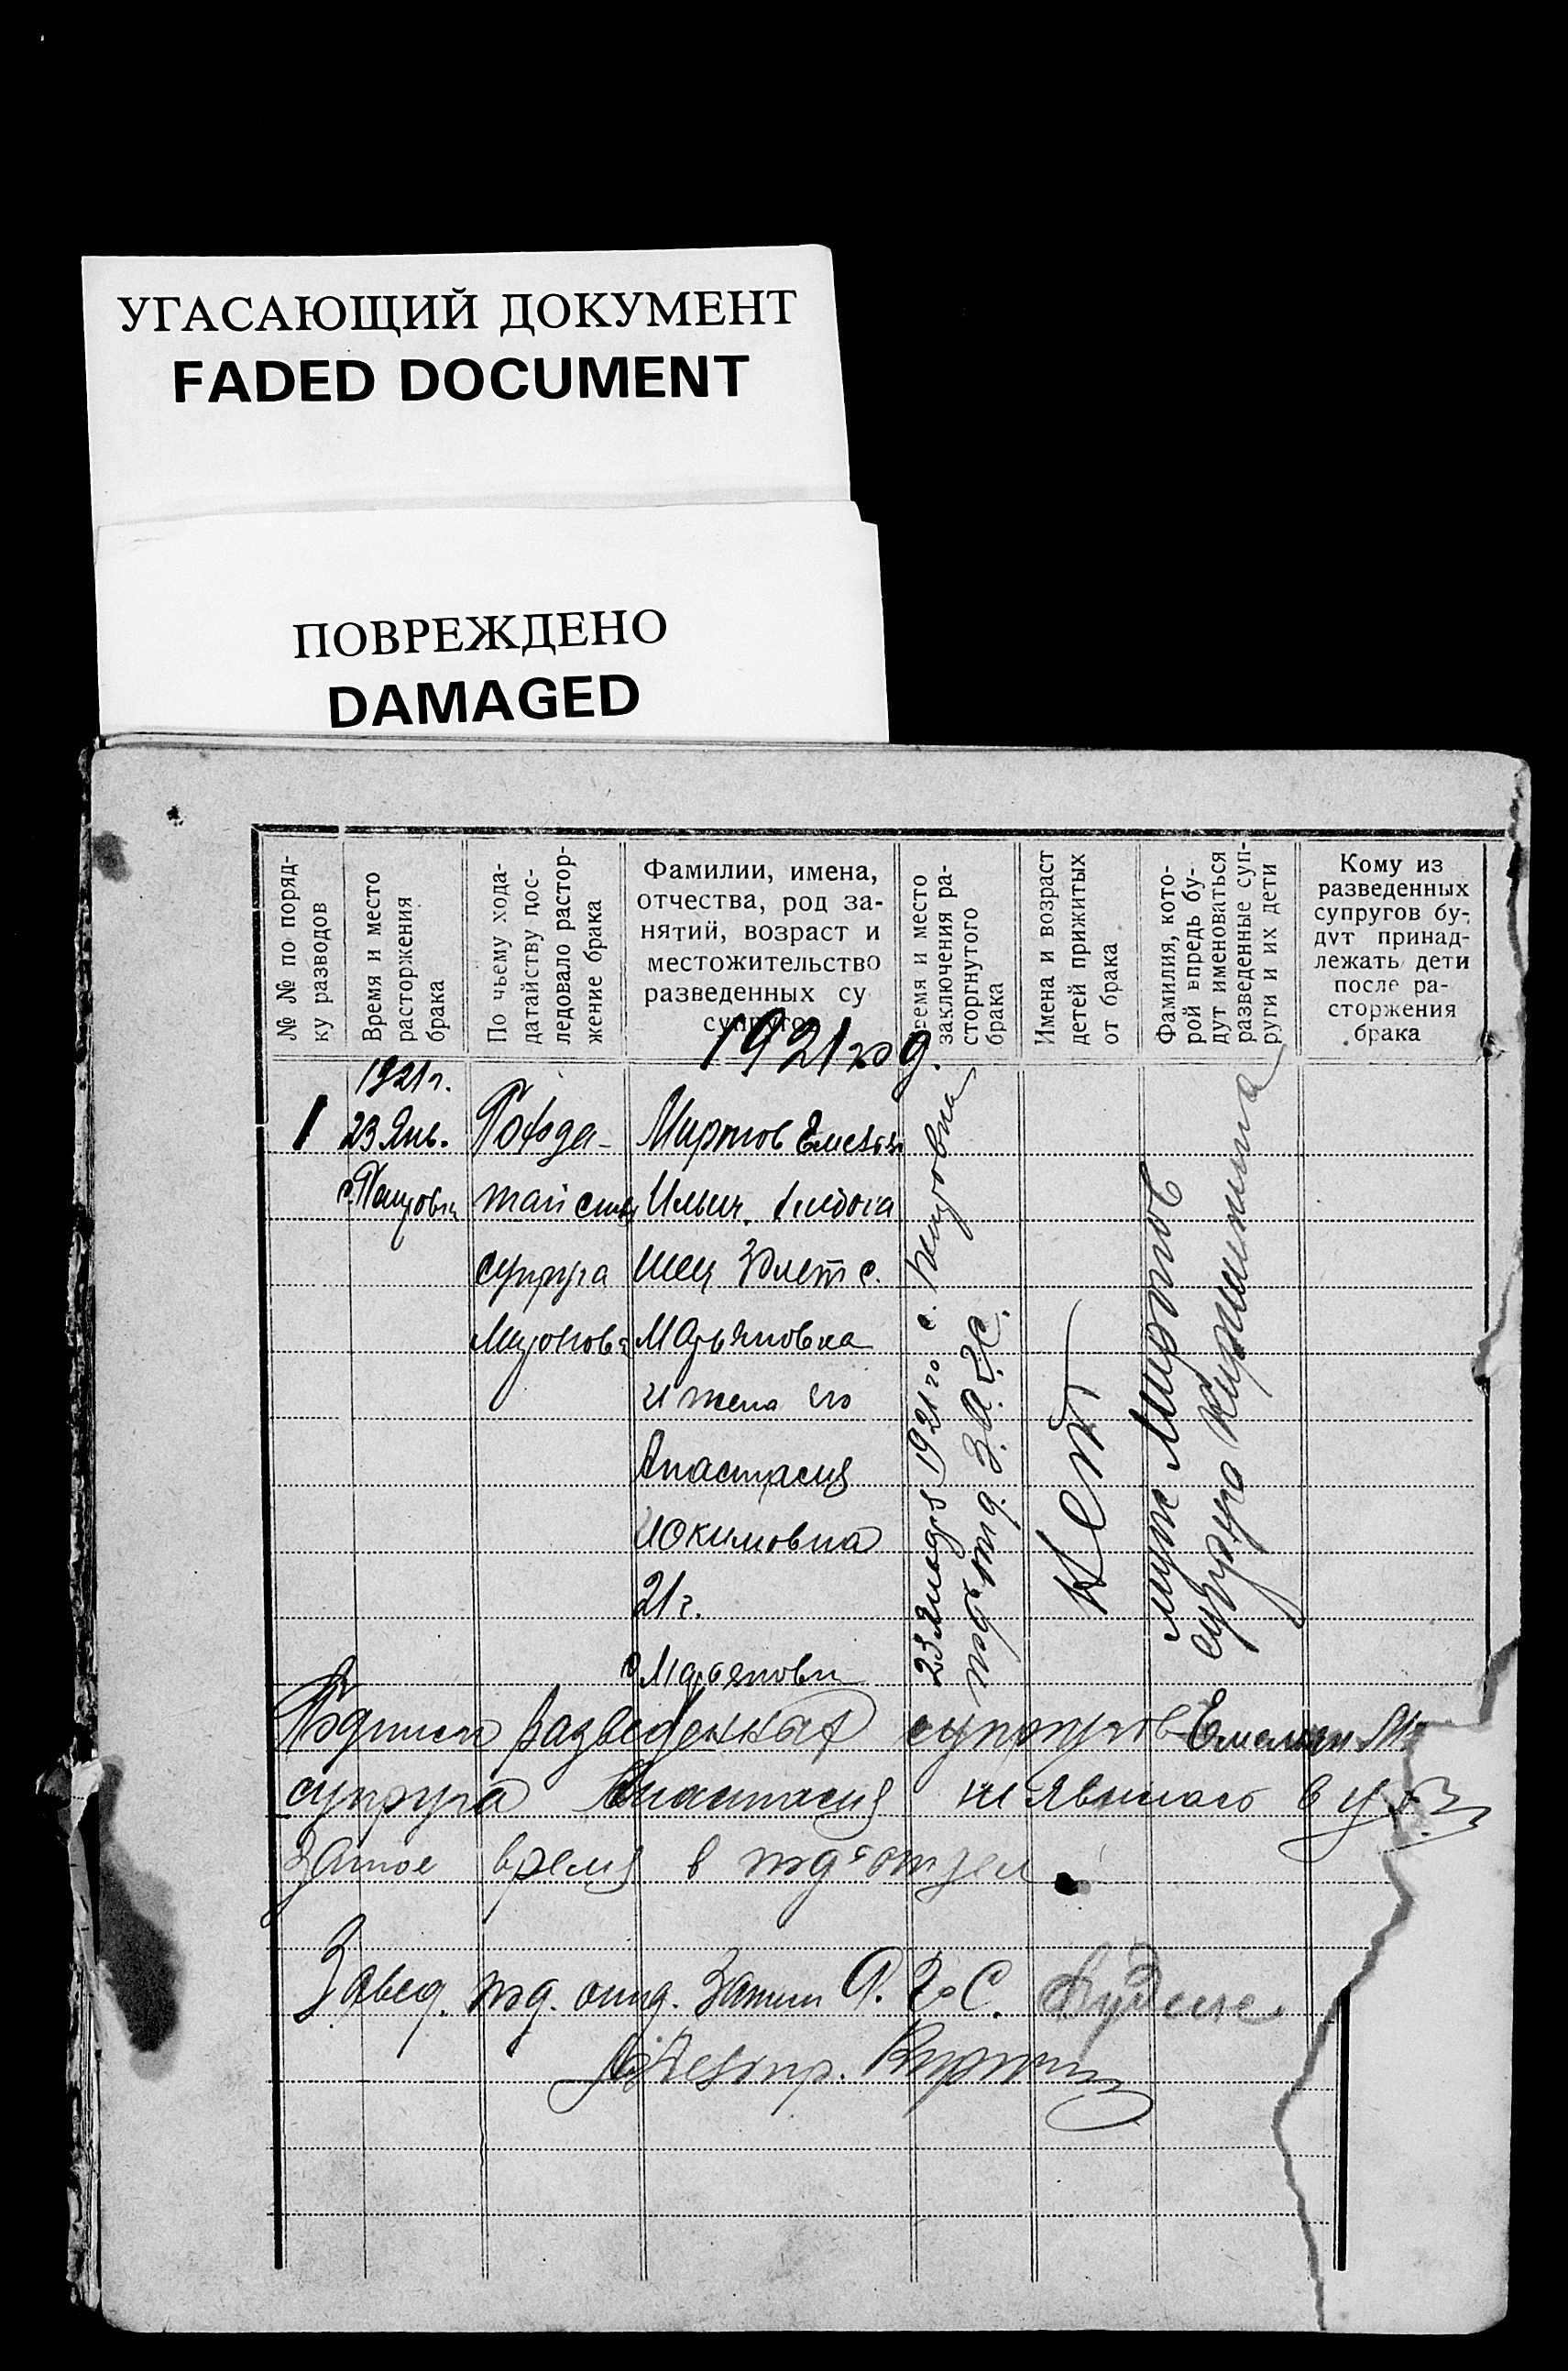 УГАСАЮЩИЙ ДОКУМЕНТ
FADED DOCUMENT
ПОВРЕЖДЕНО
DAMAGED
№ № по поряд-
ку разводов
Время и место
расторжения
брака
По чьему хода-
датайству пос-
ледовало растор-
жение брака
Фамилии, имена,
отчества, род за-
нятий, возраст и
местожительство
разведенных су
супругов
ремя и место
заключения ра-
сторгнутого
брака
Имена и возраст
детей прижитых
от брака
Фамилия, кото-
рой впредь бу-
дут именоваться
разведенные суп-
руги и их дети
Кому из
разведенных
супругов бу-
дут принад-
лежать дети
после ра-
сторжения
брака
1921 год.
1
1921 г.
23 Янв.
По хода-
тайству
супруга
Миронова
Миронов
Ильич.
с.
Марьяновка
и жена его
Анастасия
Иокимовна
21 г.
с Марьяновки
23 Января 1921 го с.
отд. З.А.Г.С.
Нет
муж Миронов
супруга
Подписи разведенных супругов Емельян
супруга Анастасия не явилась в
время в
Завед. отд. Запис А. Го С.
Делопр.